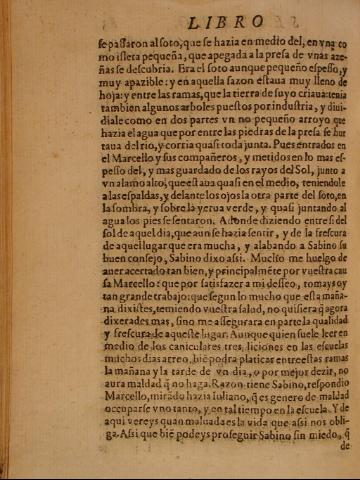 LIBRO
se passaron al soto, que se hazia en medio del, en vna co
mo isleta pequeña, que apegada a la presa de vnas aze-
ñas se descubria. Era el soto aunque pequeño espesso, y
muy apazible: y en aquella sazon estaua muy lleno de
hoja: y entre las ramas, que la tierra de suyo criaua: tenia
tambien algunos arboles puestos por industria, y diui-
diale como en dos partes vn no pequeño arroyo que
hazia el agua que por entre las piedras de la presa se hur
taua del rio, y corria quasi toda junta. Pues entrados en
el Marcello y sus compañeros, y metidos en lo mas es-
pesso del, y mas guardado de los rayos del Sol, junto a
vn alamo alto, que estaua quasi en el medio, teniendole
a las espaldas, y delante los ojos la otra parte del soto, en
la sombra, y sobre la yerua verde, y quasi juntando al
agua los pies se sentaron. Adonde diziendo entre si del
sol de aquel dia, que aun se hazia sentir, y de la frescura
de aquel lugar que era mucha, y alabando a Sabino su
buen consejo, Sabino dixo assi. Mucho me huelgo de
auer acertado tan bien, y principalmẽte por vuestra cau
sa Marcello: que por satisfazer a mi desseo, tomays oy
tan grande trabajo: que segun lo mucho que esta maña-
na, dixistes, temiendo vuestra salud, no quisiera q̃ agora
dixerades mas, sino me assegurara en parte la qualidad
y frescura de aqueste lugar. Aunque quien suele leer en
medio de los caniculares tres liciones en las escuelas
muchos dias arreo, biẽ podra platicar entre estas ramas
la mañana y la tarde de vn dia, o por mejor dezir, no
aura maldad q̃ no haga. Razon tiene Sabino, respondio
Marcello, mirãdo hazia Iuliano, q̃ es genero de maldad
occuparse vno tanto, y en tal tiempo en la escuela. Y de
aqui vereys quan maluada es la vida que assi nos obli-
ga. Assi que biẽ podeys proseguir Sabino sin miedo, q̃
de